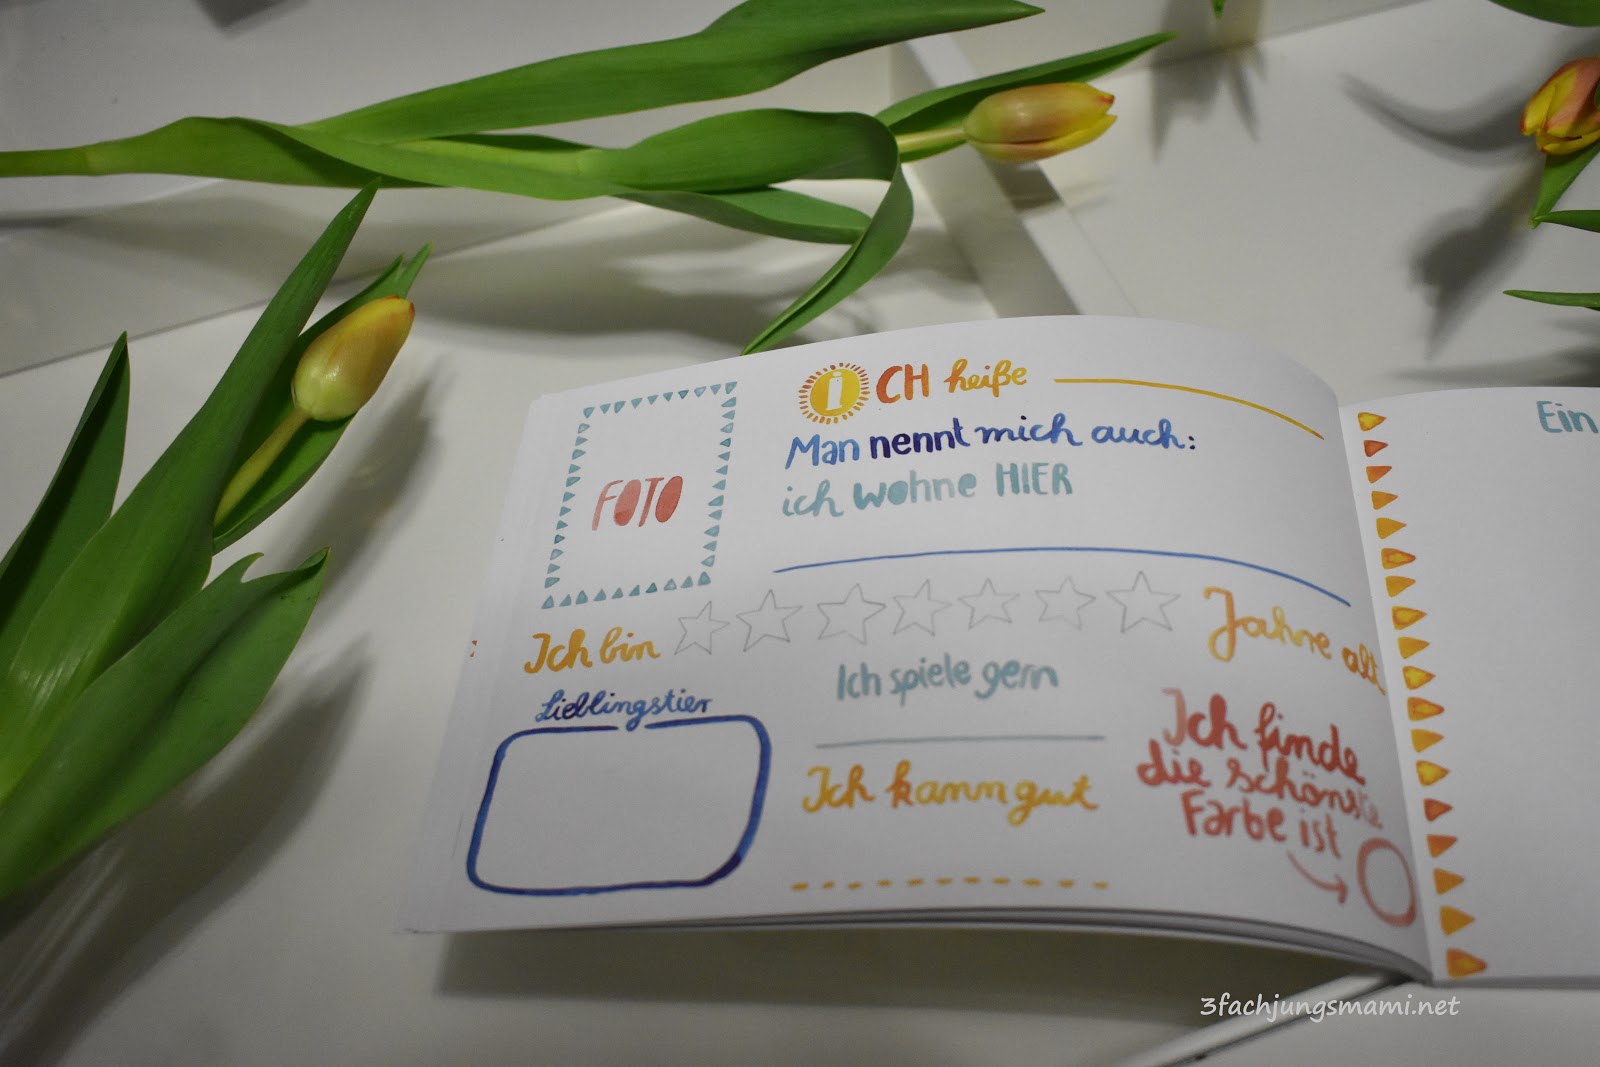 FOTO
iCH heiße
Man nennt mich auch:
ich wohne HIER
Ich bin
Jahre alt
Lieblingstier
Ich spiele gern
Ich kann gut
Ich finde
die schönste
Farbe ist
Ein
3fachjungsmami.net